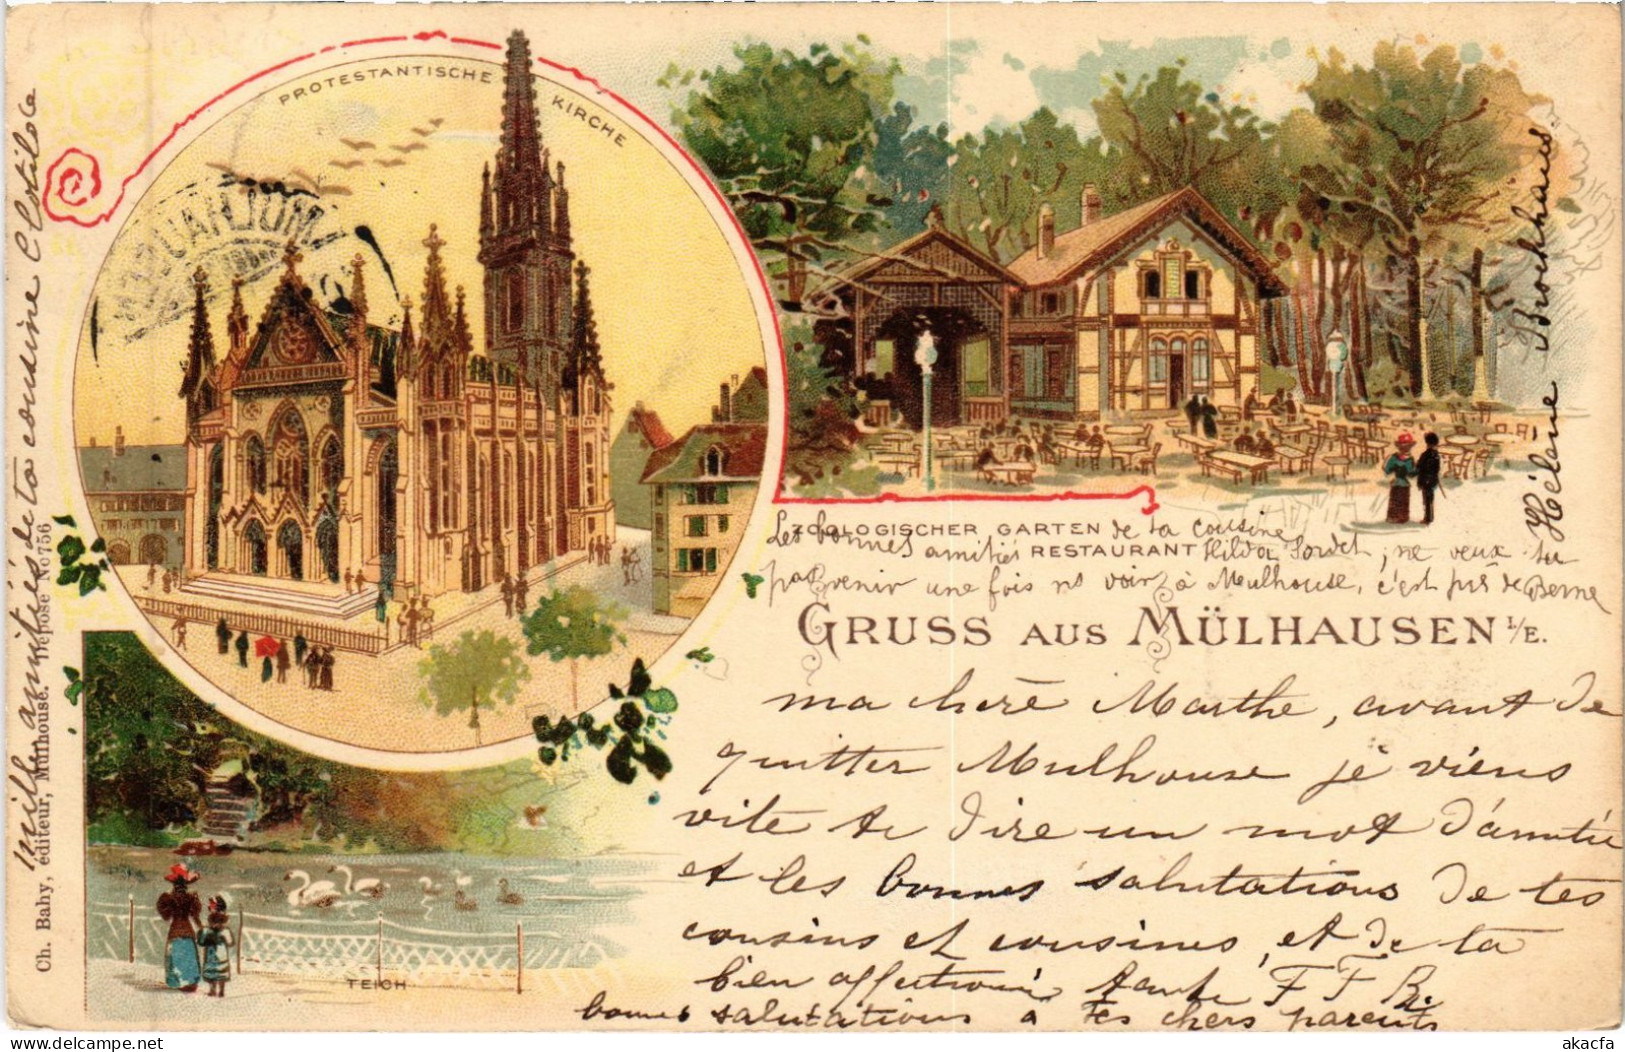 PROTESTANTISCHE KIRCHE
ZOOLOGISCHER GARTEN
RESTAURANT
Les bonnes amitiés de ta cousine
Hilda Sordet, ne veux-tu
pas venir une fois ns voir à Mulhouse, c'est près de Berne
GRUSS AUS MÜLHAUSEN I/E.
ma chère Marthe, avant de
quitter Mulhouse je viens
vite te dire un mot d'amitié
et les bonnes salutations de tes
cousins et cousines, et de ta
bien affectionée tante F F B.
bonnes salutations a tes chers parents
Hélène Brockhaus
mille amitiés de ta cousine Clotilde
Ch. Bahy, éditeur, Mulhouse. Déposé No 756
TEICH
akacfa